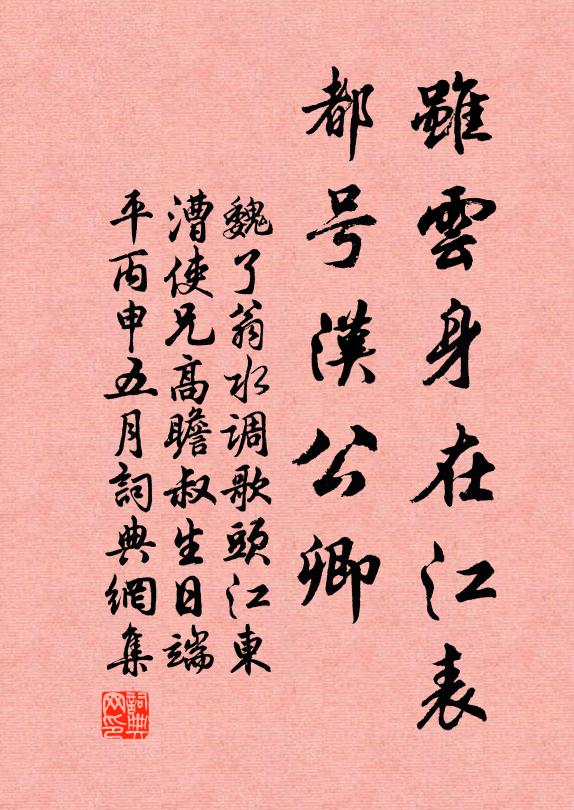 雖雲身在江表
都号漢公卿
魏了翁水调歌頭江東
漕使兄高瞻叔生日端
平丙申五月詞典網集
詞典
网印